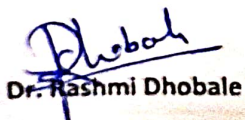 Dhobale
Dr. Rashmi Dhobale